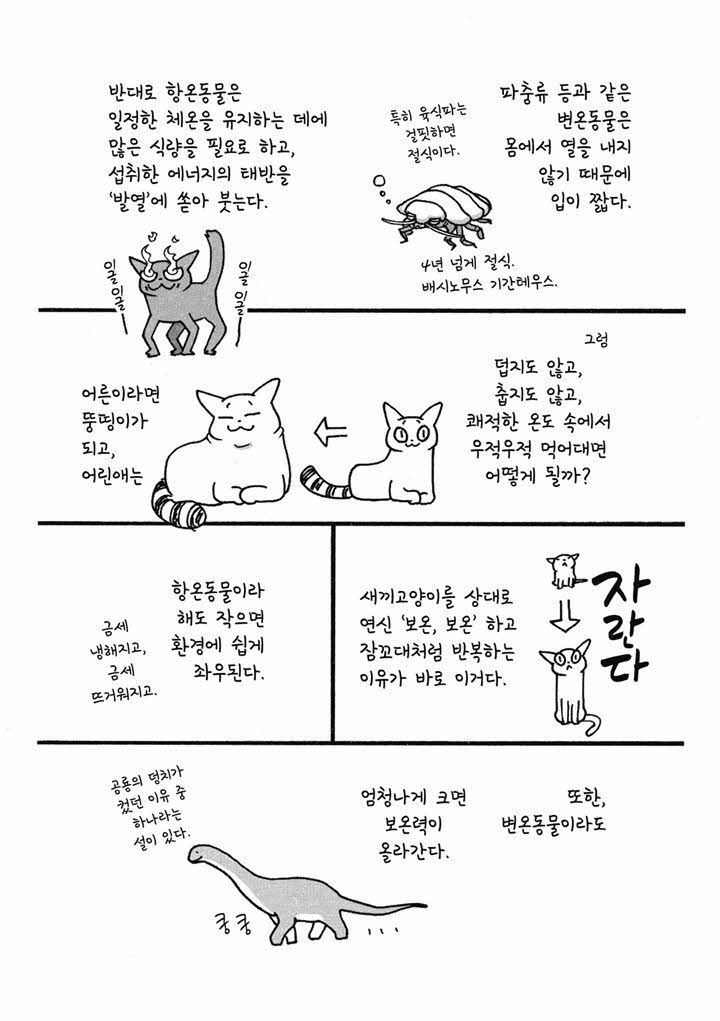 파충류 등과 같은
변온동물은
몸에서 열을 내지
않기 때문에
입이 짧다.
특히 육식파는
걸핏하면
절식이다.
4년 넘게 절식.
배시노무스 기간테우스.
반대로 항온동물은
일정한 체온을 유지하는 데에
많은 식량을 필요로 하고,
섭취한 에너지의 태반을
‘발열’에 쏟아 붓는다.
이글
이글
이글
이글
그럼
덥지도 않고,
춥지도 않고,
쾌적한 온도 속에서
우적우적 먹어대면
어떻게 될까?
어른이라면
뚱띵이가
되고,
어린애는
자란다
새끼고양이를 상대로
연신 ‘보온, 보온’ 하고
잠꼬대처럼 반복하는
이유가 바로 이거다.
항온동물이라
해도 작으면
환경에 쉽게
좌우된다.
금세
냉해지고,
금세
뜨거워지고.
또한,
변온동물이라도
엄청나게 크면
보온력이
올라간다.
공룡의 덩치가
컸던 이유 중
하나라는
설이 있다.
쿵 쿵
...